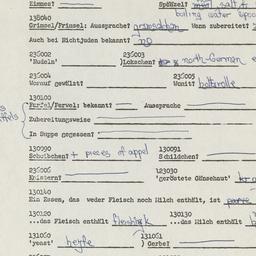 Eimmes? Spätzel? meal, salt &
boiling water spoo
138040
Grimsel/Frimsel: Aussprache? Wann zubereitet?
Auch bei Nichtjuden bekannt? no
236002 236003
'Nudeln' Lokschen? north-German
236004 236005
Worauf gewälzt? Womit?
130100
Farfel/Fervel: bekannt? Aussprache
Zubereitungsweise
In Suppe gegessen?
130090 130091
Scheibchen? + pieces of appel Schildchen?
236006 123030
Knistern? 'geröstete Gänsehaut'
130140
Ein Essen, das weder Fleisch noch Milch enthält, ist
130120 130130
...das Fleisch enthält fleishik ...das Milch enthält
131060 131061
'yeast' heffe ) Gerbe?